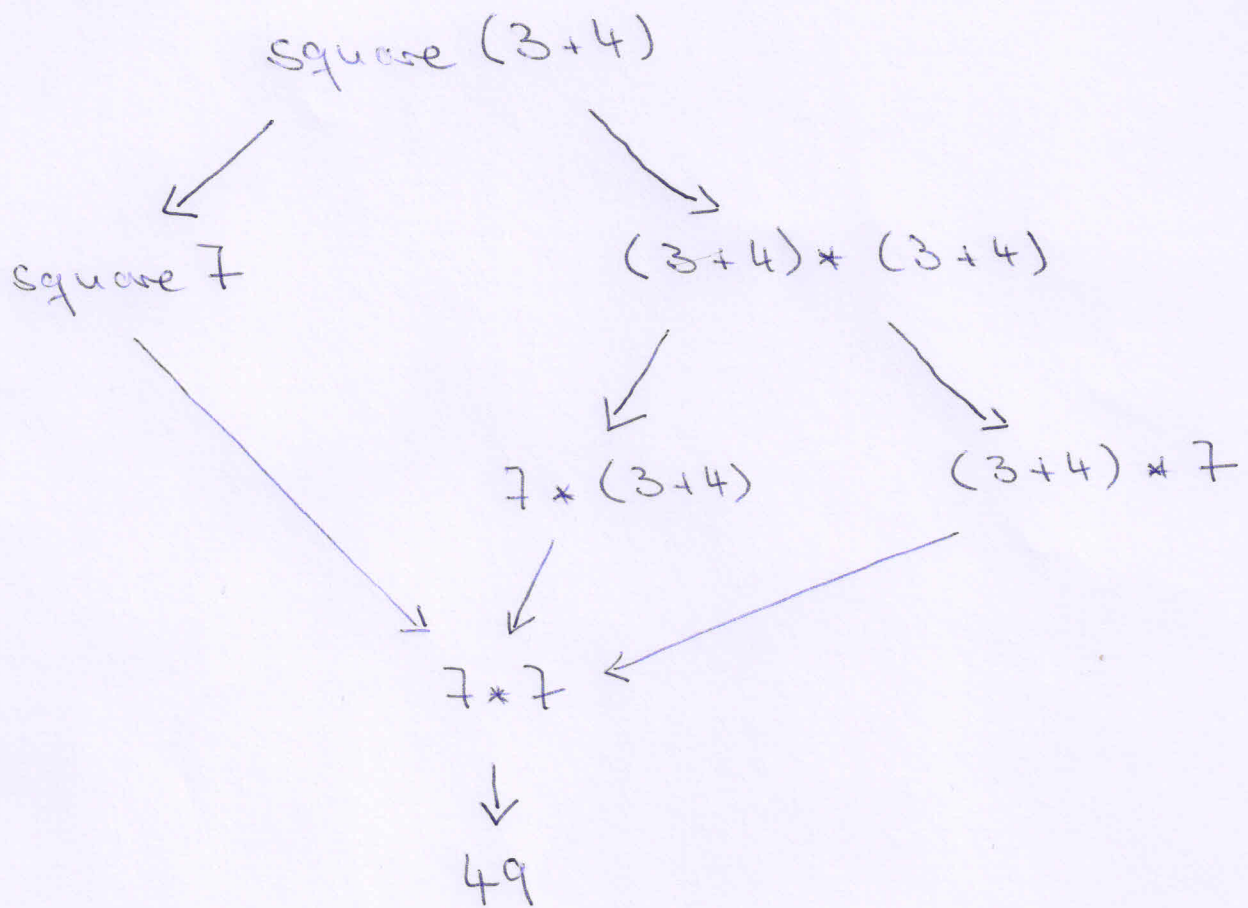 square (3+4)
square 7
(3+4)*(3+4)
7*(3+4)
(3+4)*7
7*7
49